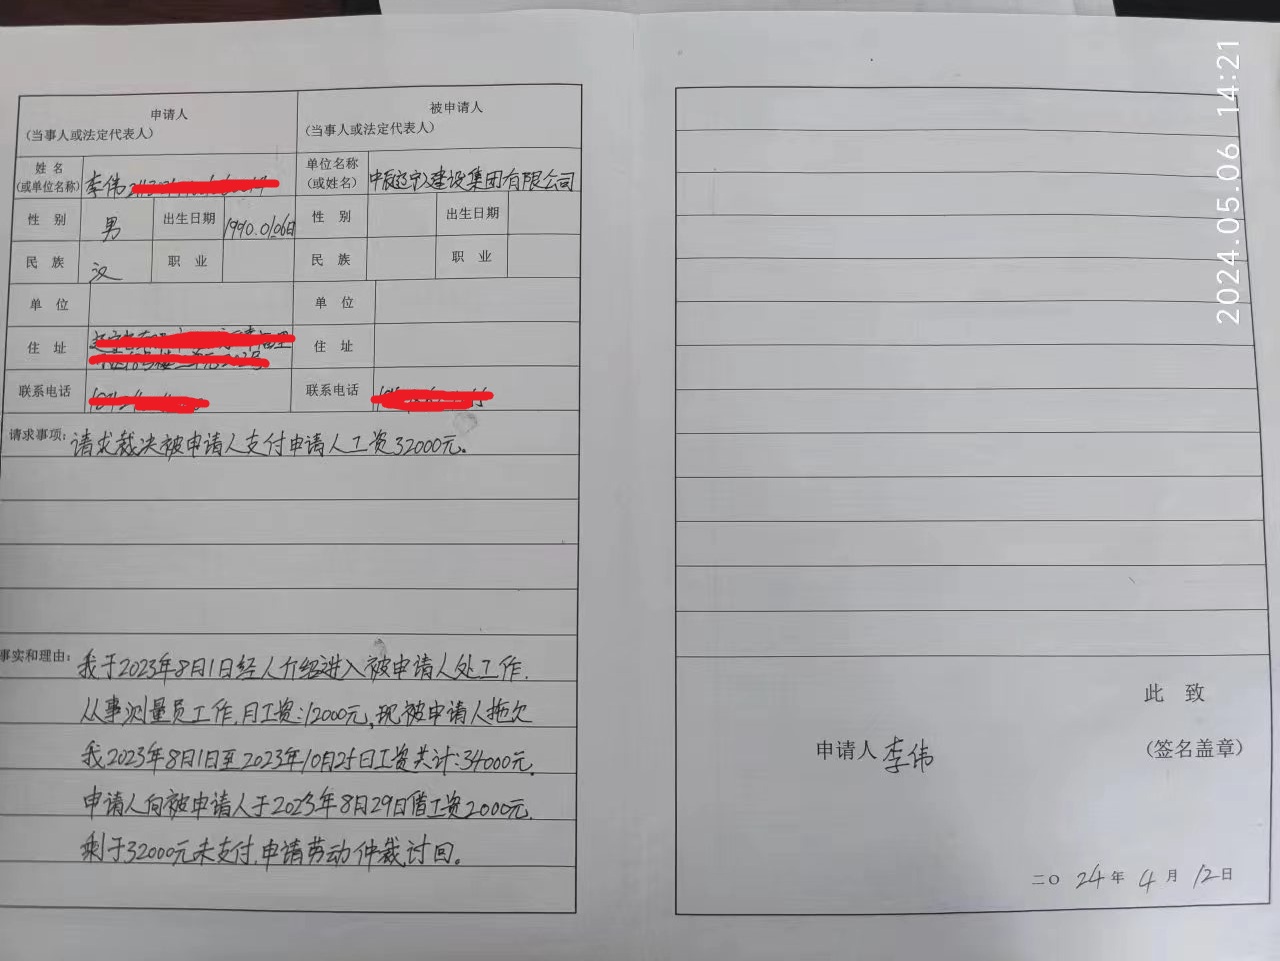 申请人
（当事人或法定代表人）
被申请人
（当事人或法定代表人）
姓 名
（或单位名称）
李伟
单位名称
（或姓名）
中辰辽宁建设集团有限公司
性 别
男
出生日期
1990.01.06日
性 别
出生日期
民 族
汉
职 业
民 族
职 业
单 位
单 位
住 址
住 址
联系电话
联系电话
请求事项：请求裁决被申请人支付申请人工资32000元。
事实和理由：我于2023年8月1日经人介绍进入被申请人处工作，
从事测量员工作，月工资：12000元，现被申请人拖欠
我2023年8月1日至2023年10月25日工资共计：34000元，
申请人向被申请人于2023年8月29日借工资2000元，
剩于32000元未支付，申请劳动仲裁讨回。
此 致
申请人 李伟 （签名盖章）
二〇24年4月12日
2024.05.06 14:21